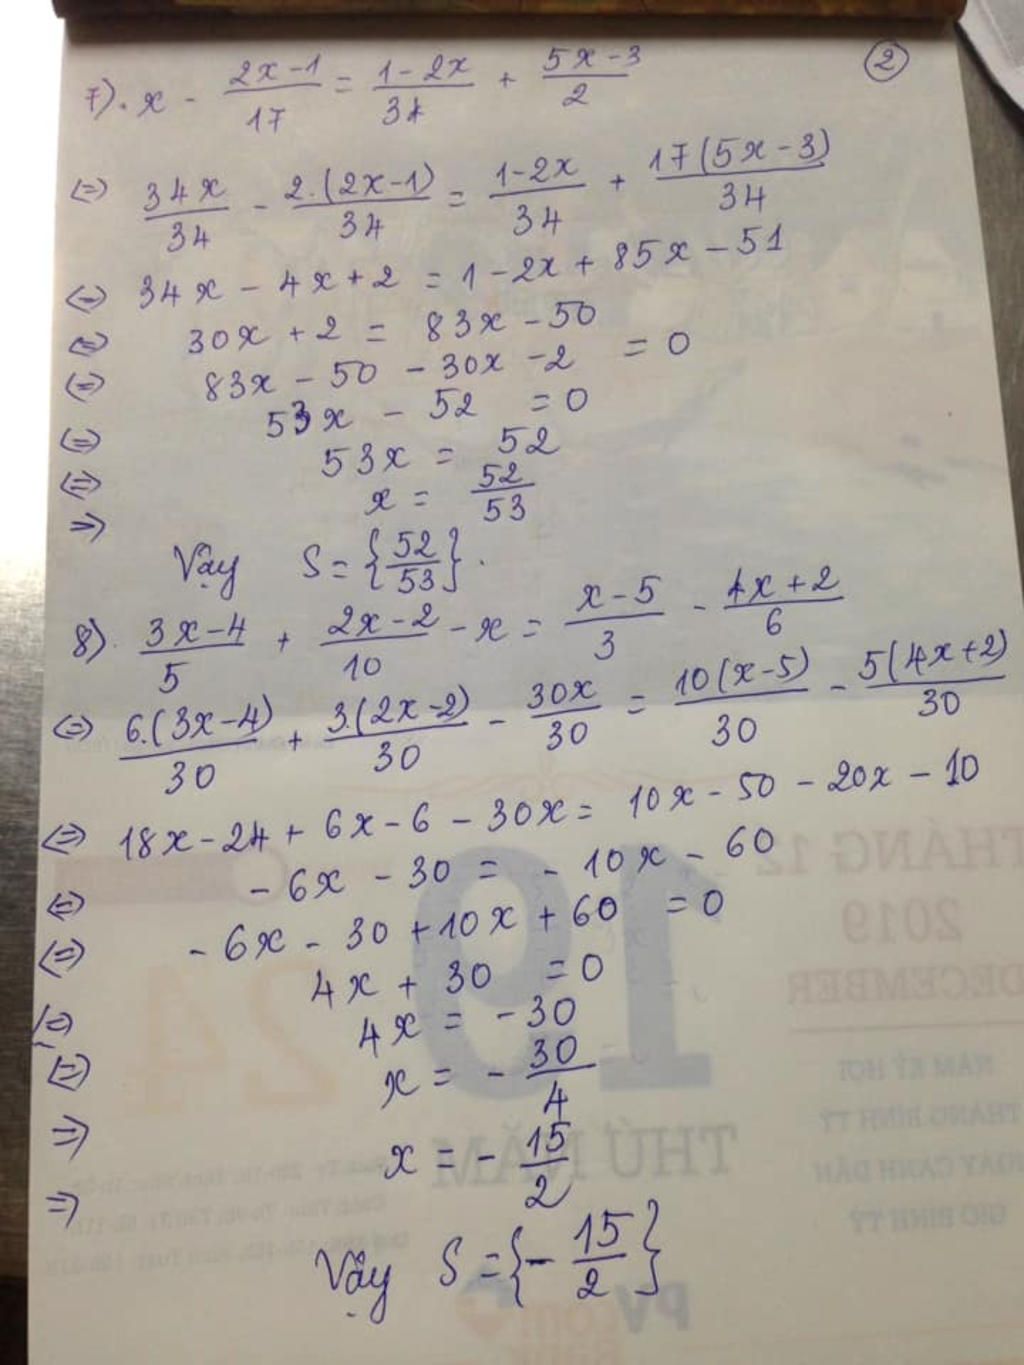 ②
7). x - \frac{2x-1}{17} = \frac{1-2x}{34} + \frac{5x-3}{2}
⇔ \frac{34x}{34} - \frac{2.(2x-1)}{34} = \frac{1-2x}{34} + \frac{17(5x-3)}{34}
⇔ 34x - 4x + 2 = 1 - 2x + 85x - 51
⇔ 30x + 2 = 83x - 50
⇔ 83x - 50 - 30x - 2 = 0
⇔ 53x - 52 = 0
⇔ 53x = 52
⇒ x = \frac{52}{53}
Vậy S = {\frac{52}{53}}.
8). \frac{3x-4}{5} + \frac{2x-2}{10} - x = \frac{x-5}{3} - \frac{4x+2}{6}
⇔ \frac{6.(3x-4)}{30} + \frac{3.(2x-2)}{30} - \frac{30x}{30} = \frac{10(x-5)}{30} - \frac{5(4x+2)}{30}
⇔ 18x - 24 + 6x - 6 - 30x = 10x - 50 - 20x - 10
⇔ -6x - 30 = -10x - 60
⇔ -6x - 30 + 10x + 60 = 0
⇔ 4x + 30 = 0
⇔ 4x = -30
⇒ x = -\frac{30}{4}
⇒ x = -\frac{15}{2}
Vậy S = {-\frac{15}{2}}
THÁNG 12
2019
DECEMBER
19
24
THỨ NĂM
NĂM KỶ HỢI
THÁNG BÍNH TÝ
NGÀY CANH DẦN
GIỜ BÍNH TÝ
PV
com
Bank